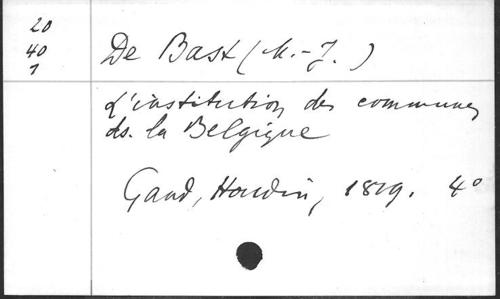 20
40
1
De Bast (M.-J.)
L'institution des communes
ds. la Belgique
Gand, Houdin, 1819. 4°